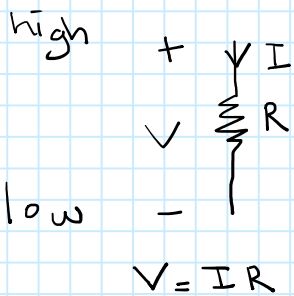 high + I
V R
low -
V = IR